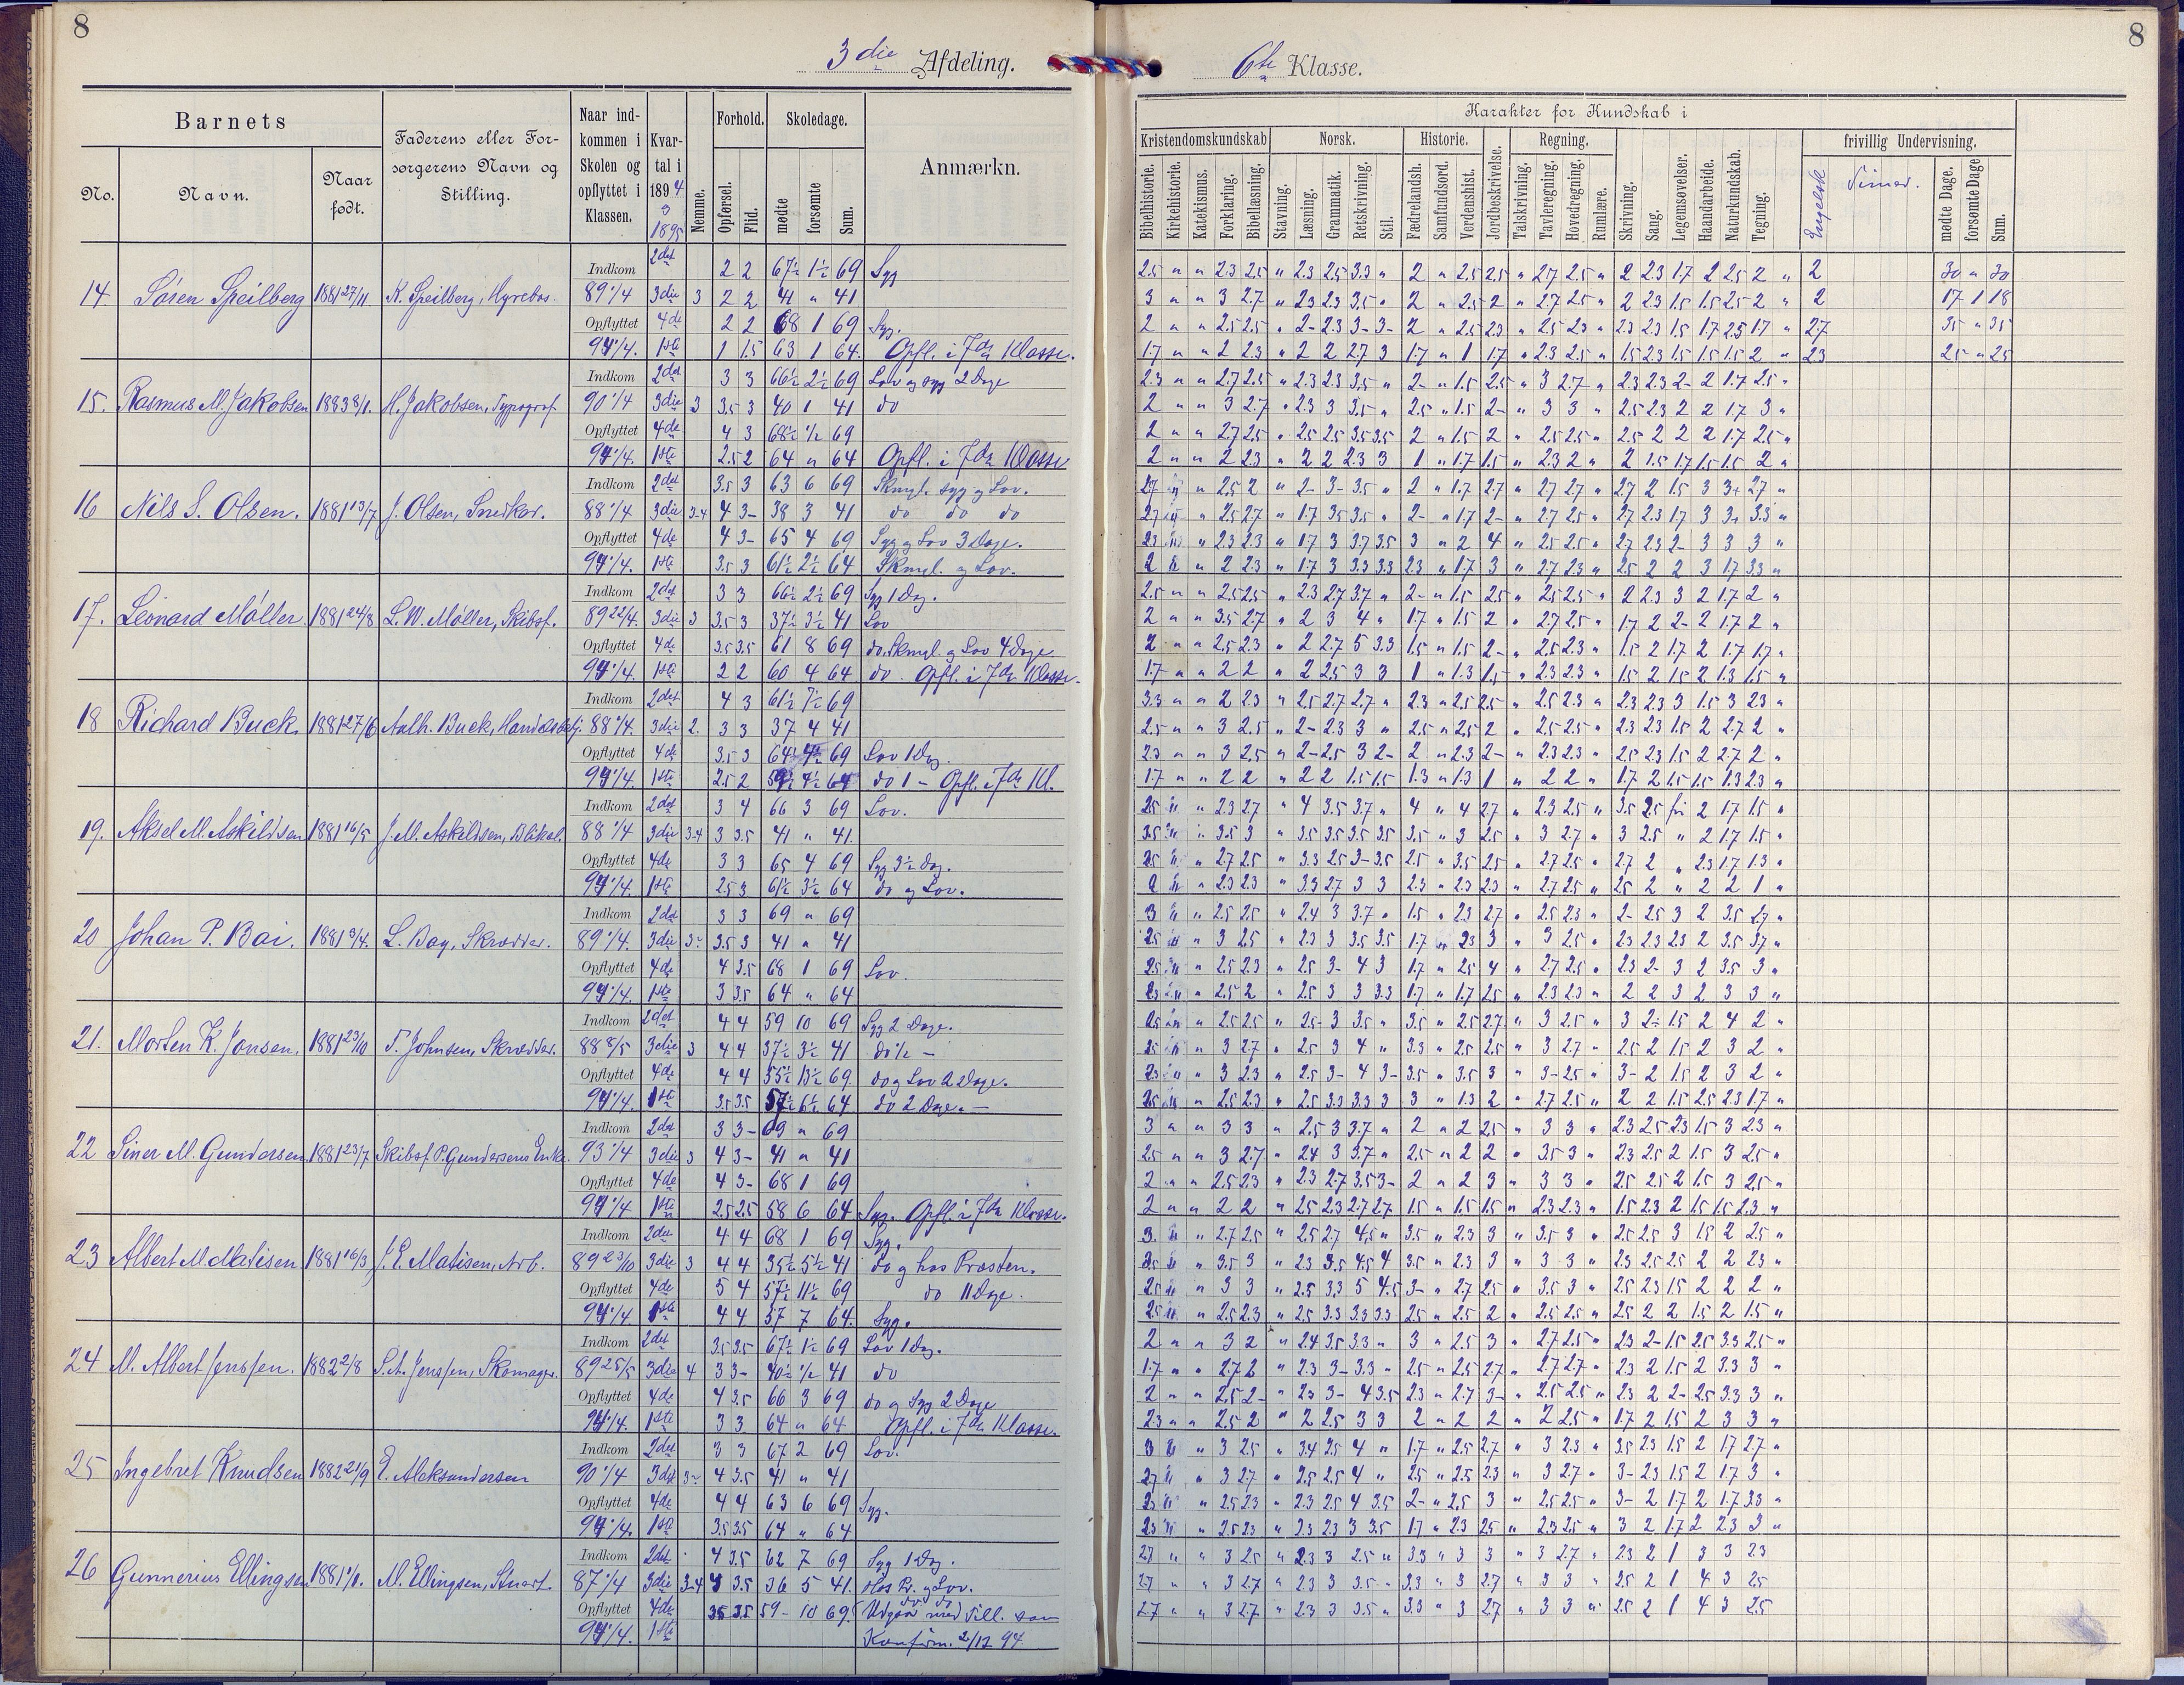 8
3die Afdeling.
Barnets
No.
Navn.
Naar født.
Faderens eller Forsorgerens Navn og Stilling.
Naar indkommen i Skolen og opflyttet i Klassen.
Kvartal i 1894 1895
Nemme.
Forhold.
Opførsel.
Flid.
Skoledage.
mødte
forsømte
Sum.
Anmærkn.
Indkom 2det 2 2 67½ 1½ 69 Syg
14. Søren Speilberg 1881 27/11 K. Speilberg, 89 1/4 3die 3 2 2 41 " 41
Opflyttet 4de 2 2 68 1 69 Syg.
94 1/4. 1ste 1 1.5 63 1 64. Opfl. i 7de Klasse.
Indkom 2det 3 3 66½ 2½ 69 Lov og syg 2 Dage
15. Rasmus M. Jakobsen 1883 8/1. H. Jakobsen, Typograf 90 1/4 3die 3 3.5 3 40 1 41 do
Opflyttet 4de 4 3 68½ ½ 69
94 1/4. 1ste 2.5 2 64 " 64 Opfl. i 7de Klasse
Indkom 2det 3.5 3 63 6 69 Skmgl. syg og Lov.
16 Nils S. Olsen. 1881 13/7 J. Olsen, Snedker. 88 1/4 3die 3-4 4 3- 38 3 41 do do do
Opflyttet 4de 4 3- 65 4 69 Syg og Lov 3 Dage.
94 1/4. 1ste 3.5 3 61½ 2½ 64 Skmgl. og Lov.
Indkom 2det 3 3 66½ 2½ 69 Syg 1 Dag.
17. Leonard Møller 1881 24/8 L. W. Møller, Skibsf. 89 22/4. 3die 3 3.5 3 37½ 3½ 41 Lov
Opflyttet 4de 3.5 3.5 61 8 69 do. Skmgl. og Lov 4 Dage
94 1/4. 1ste 2 2 60 4 64 do. Opfl. i 7de Klasse.
Indkom 2det 4 3 61½ 7½ 69
18 Richard Buck 1881 27/6 Buck, 88 1/4. 3die 2. 3 3 37 4 41
Opflyttet 4de 3.5 3 64½ 4½ 69 Lov 1 Dag.
94 1/4. 1ste 2.5 2 4½ 64 do 1 - Opfl. i 7de Kl.
Indkom 2det 3 4 66 3 69 Lov.
19. Aksel M. Askildsen 1881 16/5 J. M. Askildsen, 88 1/4 3die 3-4 3 3.5 41 " 41.
Opflyttet 4de 3 3 65 4 69 Syg 3½ Dag.
94 1/4. 1ste 2.5 3 61½ 3½ 64 do og Lov.
Indkom 2det 3 3 69 " 69
20 Johan P. Bai. 1881 9/4. L. Bay, Skrædder. 89 1/4. 3die 3.5 3 41 " 41
Opflyttet 4de 4 3.5 68 1 69 Lov.
94 1/4. 1ste 3 3.5 64 " 64
Indkom 2det 4 4 59 10 69 Syg 2 Dage.
21. Morten K. Jonsen. 1881 23/10 T. Johnsen, Skrædder. 88 8/5 3die 3 4 4 37½ 3½ 41 do ½ -
Opflyttet 4de 4 4 55½ 13½ 69 do og Lov 2 Dage.
94 1/4. 1ste 3.5 3.5 57½ 6½ 64 do 2 Dage. -
Indkom 2det 3 3- 69 " 69
22 Einer M. Gundersen 1881 23/7 Skibsf. P. Gundersens Enke. 93 1/4 3die 3 4 3- 41 " 41
Opflyttet 4de 4 3- 68 1 69
94 1/4 1ste 2.5 2.5 58 6 64 Syg. Opfl. i 7de Klasse.
Indkom 2det 4 4 68 1 69 Syg.
23 Albert M. Matisen 1881 16/3 J. E. Matisen, Arb. 89 23/10 3die 3 4 4 35½ 5½ 41 do og hos Præsten.
Opflyttet 4de 5 4 57½ 11½ 69 do 11 Dage.
94 1/4. 1ste 4 4 57 7 64. Syg.
Indkom 2det 3.5 3.5 67½ 1½ 69 Lov 1 Dag.
24 M. Albert Jenssen. 1882 2/8 S. A. Jenssen, Skomager. 89 25/5 3die 4 3 3- 40½ ½ 41 do
Opflyttet 4de 4 3.5 66 3 69 do og Syg 2 Dage
94 1/4. 1ste 3 3 64 " 64 Opfl. i 7de Klasse.
Indkom 2det 3 3 67 2 69 Lov.
25 Ingebret Knudsen 1882 21/9 E. Aleksandersen 90 1/4 3die 4 3.5 41 " 41
Opflyttet 4de 4 4 63 6 69 Syg.
94 1/4. 1ste 3.5 3.5 64 " 64
Indkom 2det 4 3.5 62 7 69 Syg 1 Dag.
26 Gunnerius Ellingsen 1881 1/1. M. Ellingsen, Stuert. 87 1/4 3die 3-4 4 3.5 36 5 41. Hos Pr. og Lov.
Opflyttet 4de 3.5 3.5 59- 10 69. do do Udgaa med Till. som
94 1/4. 1ste Konfirm. 2/12 94
8
6te Klasse.
Karakter for Kundskab i
Kristendomskundskab
Bibelhistorie.
Kirkehistorie.
Katekismus.
Forklaring.
Bibellæsning.
Norsk.
Stavning.
Læsning.
Grammatik.
Retskrivning.
Stil.
Historie.
Fædrelandsh.
Samfundsord.
Verdenshist.
Jordbeskrivelse.
Regning.
Talskrivning.
Tavleregning.
Hovedregning.
Rumlære.
Skrivning.
Sang.
Legemsøvelser.
Haandarbeide.
Naturkundskab.
Tegning.
frivillig Undervisning.
Engelsk
Timer.
mødte Dage.
forsømte Dage
Sum.
2.5 " " 2.3 2.5 " 2.3 2.5 3.3 " 2 " 2.5 2.5 " 2.7 2.5 " 2 2.3 1.7 2 2.5 2 " 2 30 " 30
3 " " 3 2.7 " 2.3 2.3 3.5 " 2 " 2.5 2 " 2.7 2.5 " 2 2.3 1.5 1.5 2.5 2 " 2 17 1 18
2 " " 2.5 2.5 " 2- 2.3 3- 3- 2 " 2.5 2.3 " 2.5 2.3 " 2.3 2.3 1.5 1.7 2.5 1.7 " 2.7 35 " 35
1.7 " " 2 2.3 " 2 2 2.7 3 1.7 " 1 1.7 " 2.3 2.5 " 1.5 2.3 1.5 1.5 1.5 2 " 2.3 25 " 25
2.3 " " 2.7 2.5 " 2.3 2.3 3.5 " 2- " 1.5 2.5 " 3 2.7 " 2.3 2.3 2- 2 1.7 2.5 "
2 " " 3 2.7 " 2.3 3 3.5 " 2.5 " 1.5 2- " 3 3 " 2.5 2.3 2 2 1.7 3 "
2 " " 2.7 2.5 " 2.5 2.5 3.5 3.5 2 " 1.5 2 " 2.5 2.5 " 2.5 2 2 2 1.7 2.5 "
2 " " 2 2.3 " 2 2 2.3 3 1 " 1.7 1.5 " 2.3 2 " 2 1.5 1.7 1.5 1.5 2 "
2.7 " 2.5 2 " 2- 3- 3.5 " 2 " 1.7 2.7 " 2.7 2.7 " 2.7 2 1.5 3 3+ 2.7 "
2.7 " 2.5 2.7 " 1.7 3.5 3.5 " 2- " 1.7 2- " 2.7 2.5 " 2.7 2.3 1.7 3 3+ 3.3 "
2.3 " 2.3 2.3 " 1.7 3 3.7 3.5 3 " 2 4 " 2.5 2.5 " 2.7 2.3 2- 3 3 3 "
2 " 2 2.3 " 1.7 3 3.3 3.3 2.3 " 1.7 3 " 2.7 2.3 " 2.5 2 2 3 1.7 3.3 "
2.5 " " 2.5 2.5 " 2.3 2.7 3.7 " 2- " 1.5 2.5 " 2.5 2.5 " 2 2.3 3 2 1.7 2 "
2 " " 3.5 2.7 " 2 3 4 " 1.7 " 1.5 2 " 2.7 2.5 " 1.7 2 2- 2 1.7 2 "
2 " " 2.5 2.3 " 2 2.7 5 3.3 1.5 " 1.5 2- " 2.5 2.3 " 1.5 2 1.7 2 1.7 1.7 "
1.7 " " 2 2 " 2 2.5 3 3 1 " 1.3 1.5 " 2.3 2.3 " 1.5 2 1.5 2 1.3 1.5 "
3.3 " " 2 2.3 " 2.5 2.7 2.7 " 2.3 " 2.5 2.5 " 2.5 2.3 " 2.3 2.3 3 1.5 3 2.3 "
2.5 " " 3 2.5 " 2- 2.3 3 " 2.5 " 2.5 2 " 2.5 2.5 " 2.3 2.3 1.5 2 2.7 2 "
2.3 " " 3 2.5 " 2- 2.5 3 2- 2 " 2.3 2- " 2.3 2.3 " 2.5 2.3 1.5 2 2.7 2 "
1.7 " " 2 2 " 2 2 1.5 1.5 1.3 " 1.3 1 " 2 2 " 1.7 2 1.5 1.5 1.3 2.3 "
2.5 " 2.3 2.7 " 4 3.5 3.7 " 4 " 4 2.7 " 2.3 2.5 " 3.5 2.5 fri 2 1.7 1.5 "
3.5 " 3.5 3 " 3.5 3.5 3.5 3.5 3.5 " 3 2.5 " 3 2.7 " 3 2.5 " 2 1.7 1.5 "
2.5 " 2.7 2.5 " 3.3 2.5 3- 3.5 2.5 " 3.5 2.5 " 2.7 2.5 " 2.7 2 " 2.3 1.7 1.3 "
2 " 2.3 2.3 " 3.3 2.7 3 3 2.3 " 2.3 2.3 " 2.7 2.5 " 2.5 2 " 2 2 1 "
3 " 2.5 2.5 " 2.4 3 3.7 " 1.5 " 2.3 2.7 " 2.5 2.3 " 2- 2.5 3 2 3.5 2.7 "
2.5 " 3 2.5 " 2.3 3 3.5 3.5 1.7 " 2.3 3 " 3 2.5 " 2.3 2.3 2.3 2 3.5 3.7 "
2.5 " 2.5 2.3 " 2.5 3- 4 3 1.7 " 2.5 4 " 2.7 2.5 " 2.3 2- 3 2 3.5 3 "
2.3 " 2.5 2 " 2.5 3 3 3.3 1.7 " 1.7 2.5 " 2.3 2.3 " 2 2 3 2 3 3 "
2.5 " 2.5 2.5 " 2.5- 3 3.5 " 3.5 " 2.5 2.7 " 3 2.5 " 3 2- 1.5 2 4 2 "
2.5 " 3 2.7 " 2.5 3 4 " 3.3 " 2.5 2.5 " 3 2.7 " 2.5 2 1.5 2 3 2 "
2.3 " 3 2.3 " 2.5 3- 4 3- 3.5 " 3.5 3 " 3- 2.5 " 3- 2 1.5 2 3 2 "
2.5 " 2.5 2.3 " 2.5 3.3 3.3 3 3 " 1.3 2 " 2.7 2.5 " 2 2 1.5 2.5 2.3 1.7 "
3 " " 3 3 " 2.5 3 3.7 " 2 " 2 2.5 " 3 3 " 2.3 2.5 2.3 1.5 3 2.3 "
2.5 " " 3 2.7 " 2.4 3 3.7 " 2.5 " 2 2 " 3.5 3 " 2.3 2.5 2 1.5 3 2.5 "
2 " " 2.5 2.3 " 2.3 2.7 3.5 3- 2 " 2 3 " 3 3 " 2.5 2.5 2 1.5 3 2.5 "
2 " " 2 2 " 2.5 2.3 2.7 2.7 1.5 " 1.5 1.5 " 2.3 2.3 " 1.5 2.3 2 1.5 1.5 2.3 "
3. " 2.7 2.5 " 2.5 2.7 4.5 " 3.5 " 2.3 3 " 3.5 3 " 2.5 2.5 3 1.5 2 2.5 "
3.5 " 3.5 3 " 2.3 3.5 4.5 4 3.5 " 2.3 3 " 3 3 " 2.3 2.5 2.5 2 2 2.3 "
2.5 " 3 3 " 2.5 3.3 5 4.5 3- " 2.7 2.5 " 3.5 3 " 2.5 2.3 1.5 2 2 2 "
2.5 " 2.5 2.3 " 2.5 3.3 3.3 3.3 2.5 " 2.5 2 " 2.5 2.5 " 2.5 2 2 1.5 2 1.5 "
2 " " 3 2 " 2.4 3.5 3.3 " 3 " 2.5 3 " 2.7 2.5 " 2.3 2- 1.5 2.5 3.3 2.5 "
1.7 " " 2.7 2 " 2.3 3- 3.3 " 2.5 " 2.5 2.7 " 2.7 2.7 " 2.3 2 1.5 2 3.3 3 "
2 " " 2.5 2- " 2.3 3- 4 3.5 2.3 " 2.7 3- " 2.5 2.5 " 2.3 2 2- 2.5 3.3 3 "
2.3 " " 2.5 2 " 2 2.5 3 3 2 " 2 2 " 2 2.5 " 1.7 2 1.5 2 3 3 "
3 " 3 2.5 " 3.4 2.5 4 " 1.7 " 2.5 2.7 " 3 2.3 " 3.5 2.3 1.5 2 1.7 2.7 "
2.7 " 3 2.7 " 2.5 2.5 4 " 2.5 " 2.5 2.3 " 3 2.7 " 3- 2.3 1.5 2 1.7 3 "
2.3 " 2.5 2.3 " 2.3 2.5 4 3.5 2- " 2.5 3 " 2.5 2.5 " 3- 2 1.7 2 1.7 3.3 "
2.3 " 2.5 2.3 " 2.3 2.3 3 3.5 1.7 " 2.3 2.5 " 2.3 2.5 " 3 2 1.7 2 2.3 3 "
2.7 " " 3 2.5 " 2.3 3 2.5 " 3.3 " 3 3 " 3 2.7 " 2.3 2 1 3 3 2.3
2.7 " " 3 2.7 " 2.3 3 3.5 " 3.3 " 3 2.7 " 3 3 " 2.5 2 1 4 3 2.5
2.7 " " 3 2.7 " 2.3 3 3.5 " 3.3 " 3 2.7 " 3 3 " 2.5 2 1 4 3 2.5